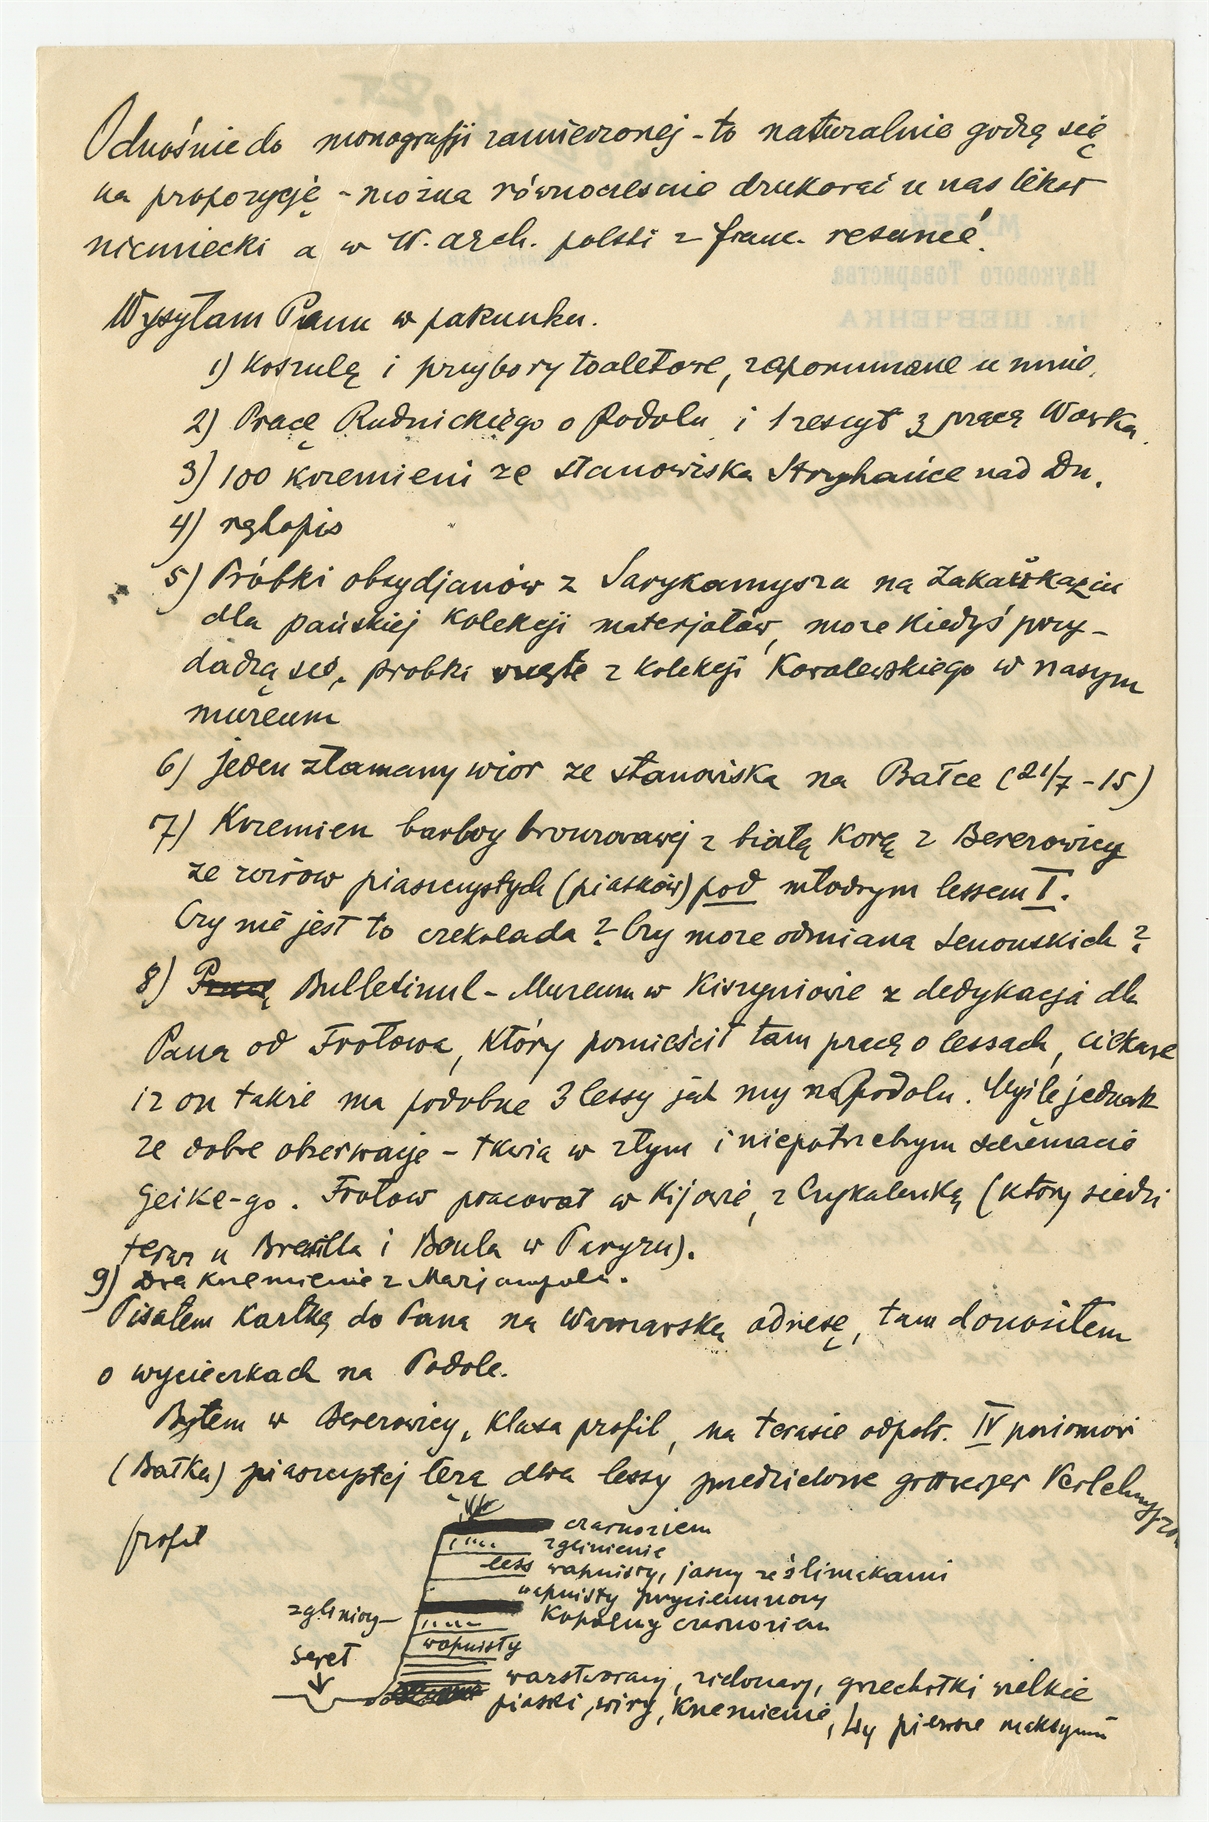 Odnośnie do monografji zamierzonej - to naturalnie godzę się
na propozycję - można równocześnie drukować u nas tekst
niemiecki a w W. arch. polski z franc. resumé.
Wysyłam Panu w pakunku.
1) Koszulę i przybory toaletowe, zapomniane u mnie.
2) Pracę Rudnickiego o Podolu i 1 zeszyt z pracą Worka.
3) 100 krzemieni ze stanowiska Stryhańce nad Dn.
4) rękopis
5) Próbki obsydjanów z Sarykamysza na Zakaukaziu
dla pańskiej kolekcji materjałów, może kiedyś przy-
dadzą się, próbki wzięte z kolekcji Kowalewskiego w naszym
muzeum
6) jeden złamany wior ze stanowiska na Bałce (21/7 - 15)
7) Krzemien barwy bronzowawej z białą korą z Berezowicy
ze żwirów piaszczystych (piasków) pod młodszym lessem I.
Czy nie jest to czekolada? Czy może odmiana senońskich?
8) Bulletinul - Muzeum w Kiszyniowie z dedykacją dla
Pana od Frołowa, który pomieścił tam pracę o lessach, ciekawe
iż on także ma podobne 3 lessy jak my na Podolu. Myślę jednak
że dobre obserwacje - tkwią w złym i niepotrzebnym schemacie
Geike-go. Frołow pracował w Kijowie, z Czykalenką (który siedzi
teraz u Breuilla i Boula w Paryżu).
9) Dwa krzemienie z Marjampola.
Pisałem kartkę do Pana na Warszawską adresę, tam donosiłem
o wycieczkach na Podole.
Byłem w Berezowicy, klasa profil, na terasie odpow. IV poziomowi
(Bałka) piaszczystej leżą dwa lessy przedzielone
profil
czarnoziem
zglinienie
less wapnisty, jasny ze ślimakami
wapnisty przyciemniony
Kopalny czarnoziem
zgliniony
wapnisty
Seret
warstwowany, zielonawy, grzechotki wielkie
piaski, żwiry, krzemienie, czy pierwsze maksymum